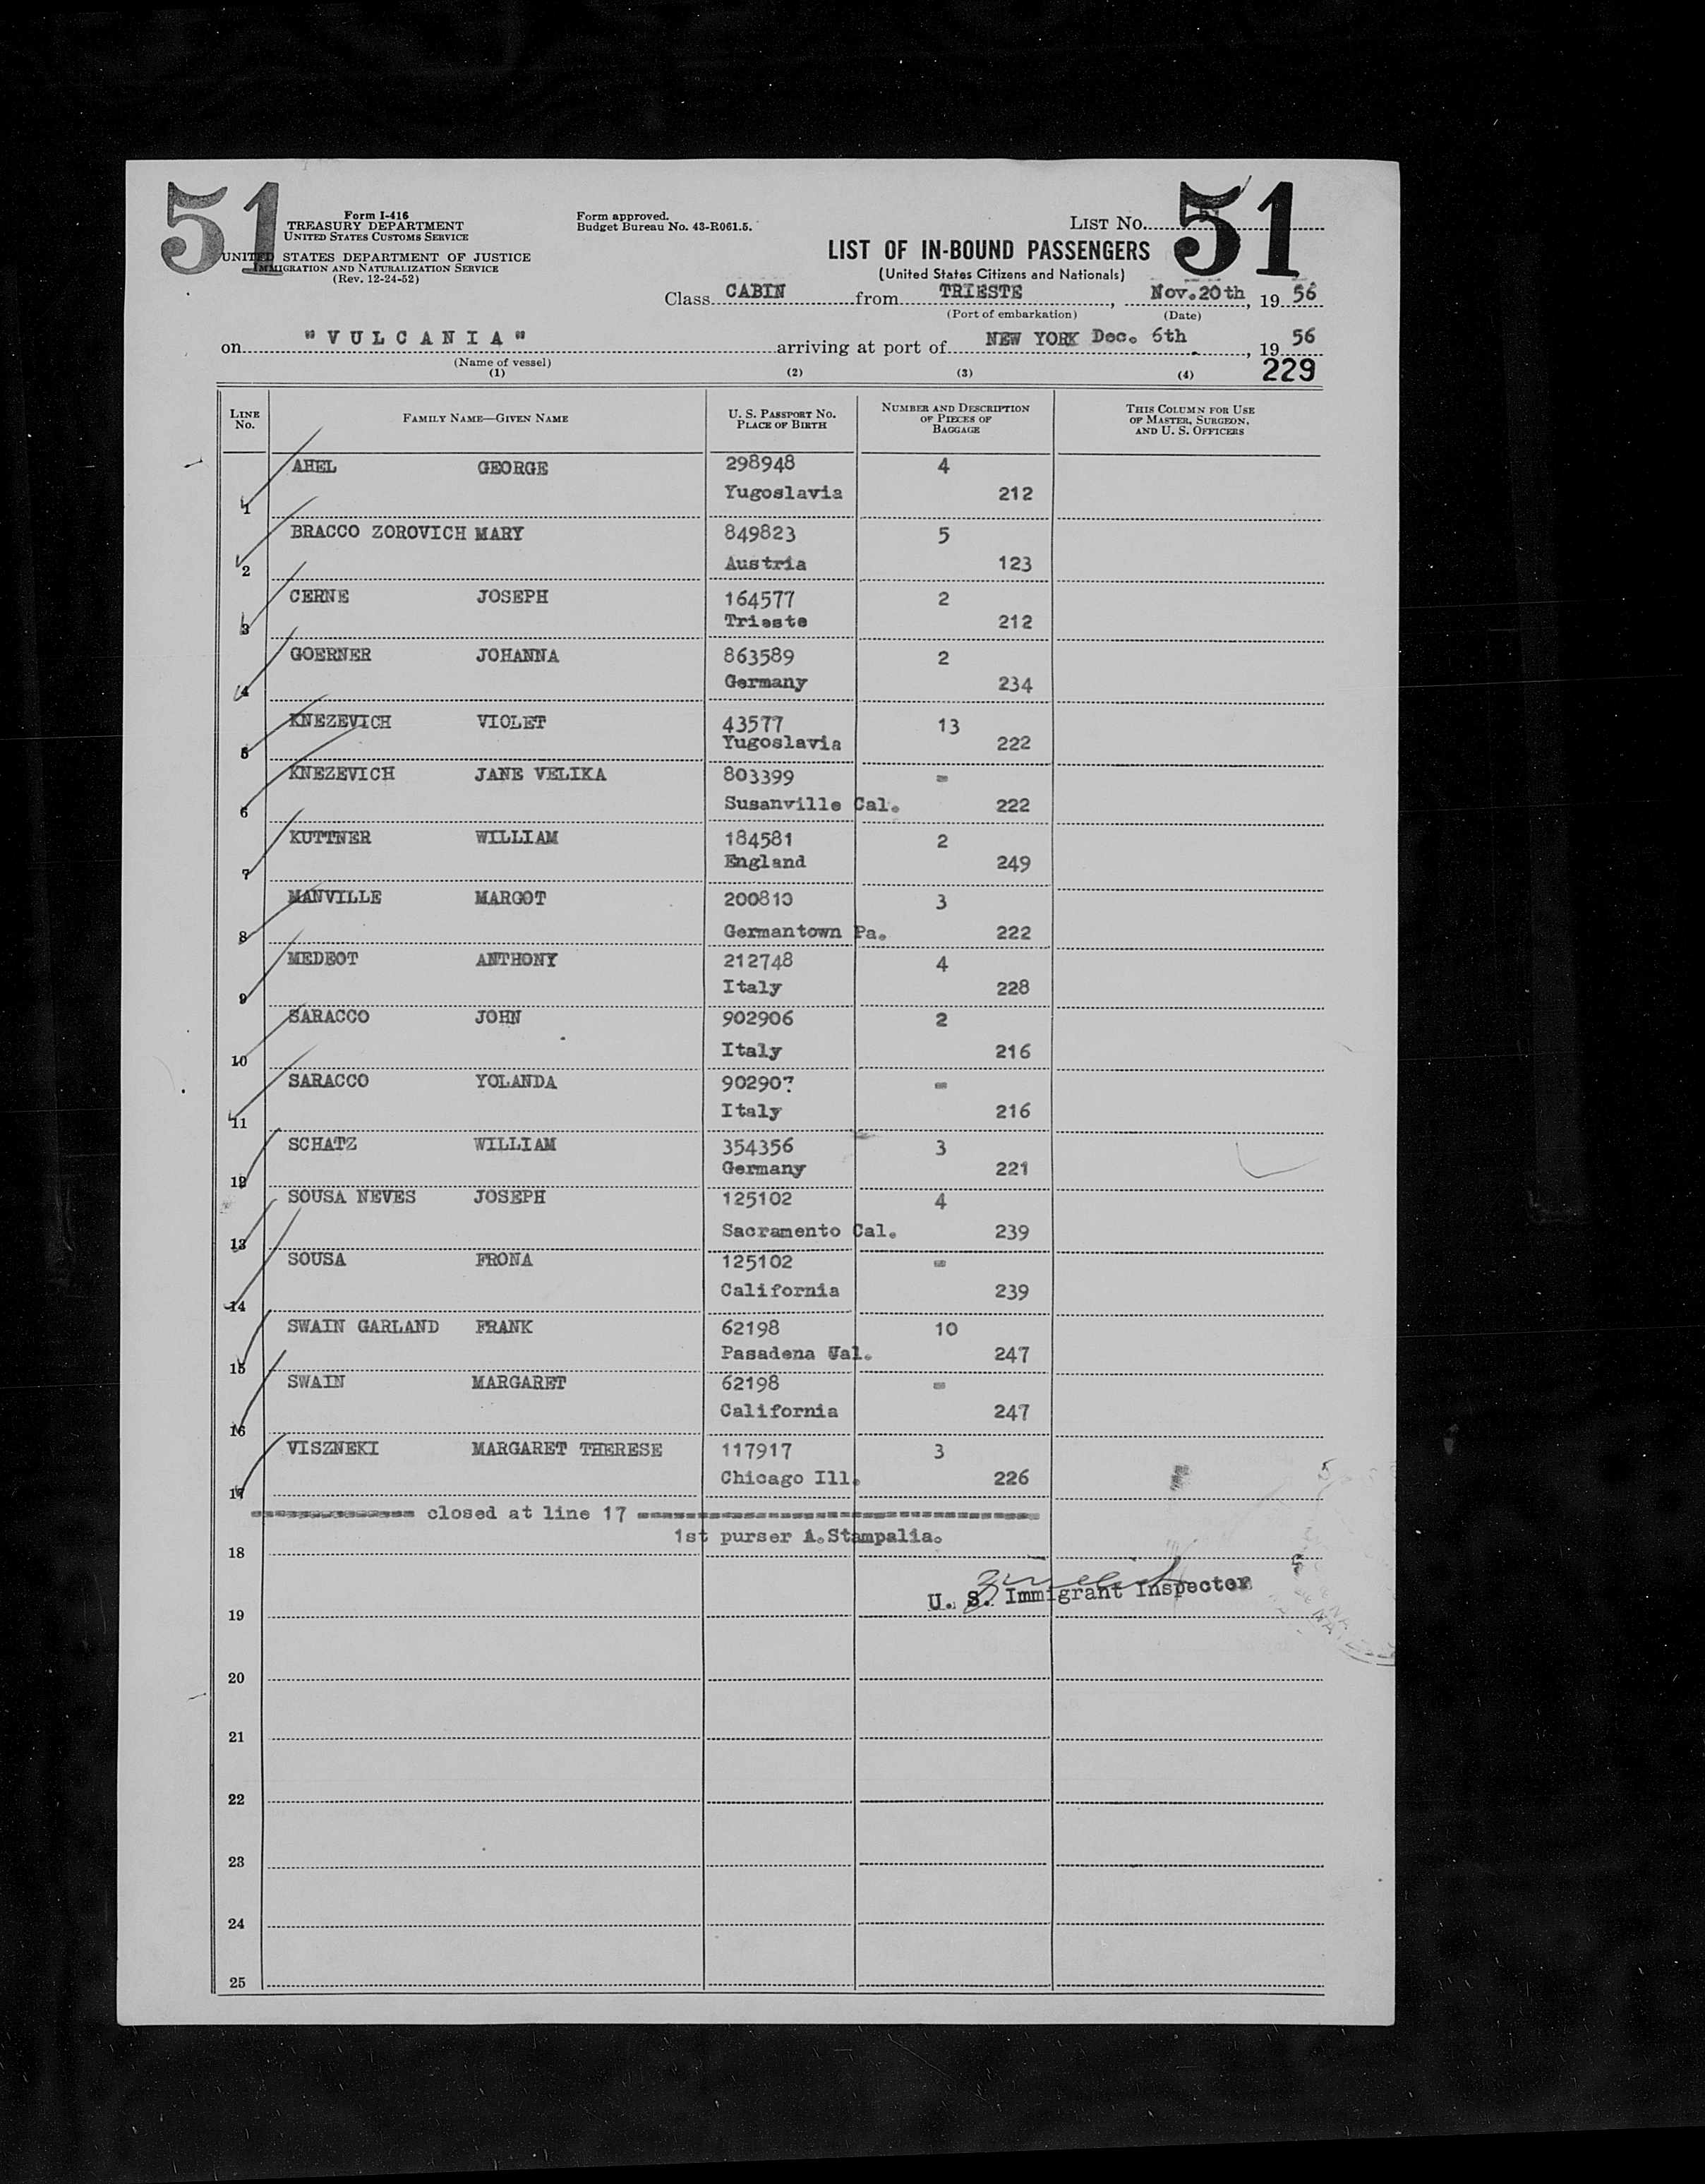 51
Form I-416
TREASURY DEPARTMENT
UNITED STATES CUSTOMS SERVICE
UNITED STATES DEPARTMENT OF JUSTICE
IMMIGRATION AND NATURALIZATION SERVICE
(Rev. 12-24-52)
Form approved.
Budget Bureau No. 43-R061.5.
LIST No. 51
LIST OF IN-BOUND PASSENGERS
(United States Citizens and Nationals)
Class CABIN from TRIESTE, Nov.20th, 19 56
(Port of embarkation) (Date)
on "VULCANIA" arriving at port of NEW YORK Dec. 6th, 19 56
(Name of vessel)
229
(1) (2) (3) (4)
LINE No. FAMILY NAME—GIVEN NAME U. S. PASSPORT NO. PLACE OF BIRTH NUMBER AND DESCRIPTION OF PIECES OF BAGGAGE THIS COLUMN FOR USE OF MASTER, SURGEON, AND U. S. OFFICERS
AHEL GEORGE 298948 4
1 Yugoslavia 212
BRACCO ZOROVICH MARY 849823 5
2 Austria 123
CERNE JOSEPH 164577 2
3 Trieste 212
GOERNER JOHANNA 863589 2
4 Germany 234
KNEZEVICH VIOLET 43577 13
5 Yugoslavia 222
KNEZEVICH JANE VELIKA 803399 =
6 Susanville Cal. 222
KUTTNER WILLIAM 184581 2
7 England 249
MANVILLE MARGOT 200810 3
8 Germantown Pa. 222
MEDEOT ANTHONY 212748 4
9 Italy 228
SARACCO JOHN 902906 2
10 Italy 216
SARACCO YOLANDA 902907 =
11 Italy 216
SCHATZ WILLIAM 354356 3
12 Germany 221
SOUSA NEVES JOSEPH 125102 4
13 Sacramento Cal. 239
SOUSA FRONA 125102 =
14 California 239
SWAIN GARLAND FRANK 62198 10
15 Pasadena Cal. 247
SWAIN MARGARET 62198 =
16 California 247
VISZNEKI MARGARET THERESE 117917 3
17 Chicago Ill. 226
============ closed at line 17 ==============================
1st purser A.Stampalia.
18
U. S. Immigrant Inspector
19
20
21
22
23
24
25